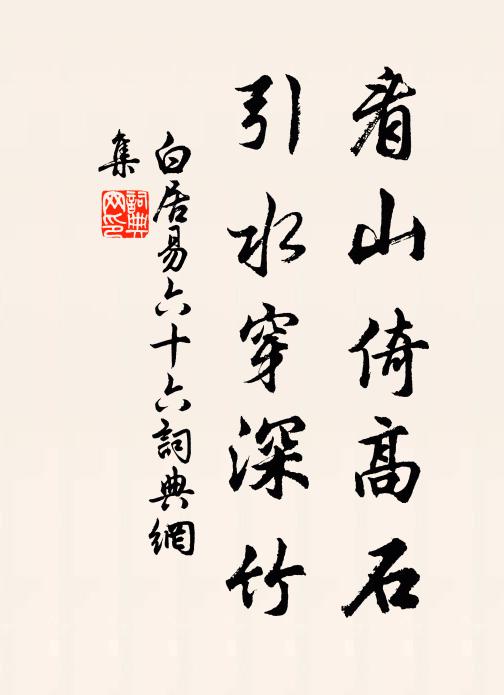 看山倚高石
引水穿深竹
白居易六十六詞典網
集
詞典網印